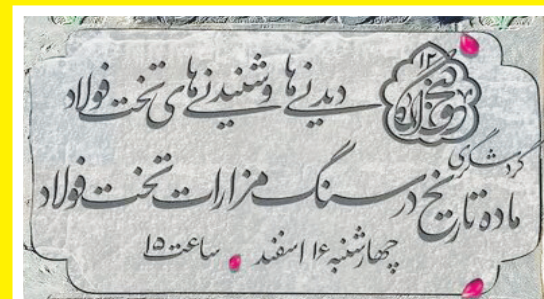 ۱۲
دیدنی‌ها و شنیدنی‌های تخت فولاد
گردشگری
ماده تاریخ در سنگ مزارات تخت فولاد
چهارشنبه ۱۶ اسفند ساعت ۱۵